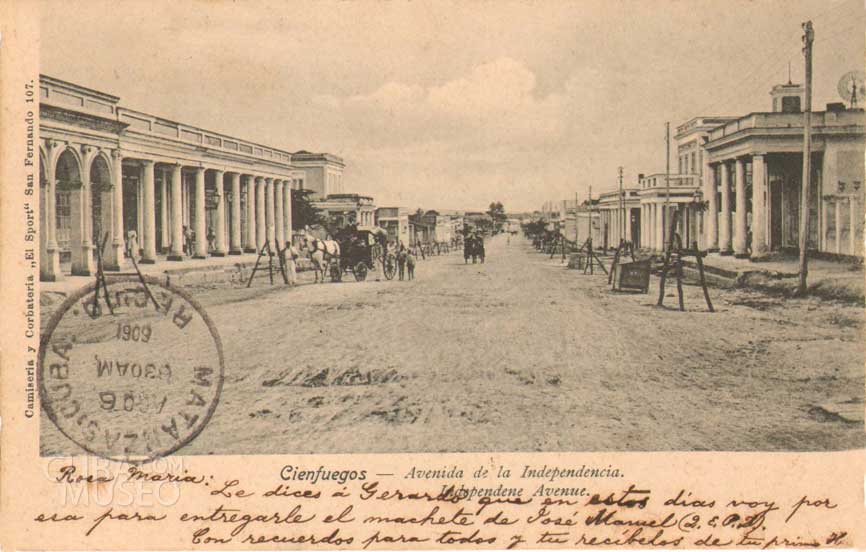 Camiseria y Corbateria „El Sport“ San Fernando 107.
MATANZAS, CUBA.
AGO 6
630AM
1909
RECIBIDO
Cienfuegos — Avenida de la Independencia.
Independene Avenue.
CUBA
MUSEO.COM
Rosa Maria:
Le dices á Gerardo que en estos dias voy por
esa para entregarle el machete de José Manuel (Q. E. P. D.).
Con recuerdos para todos y tu recíbelos de tu primo H.